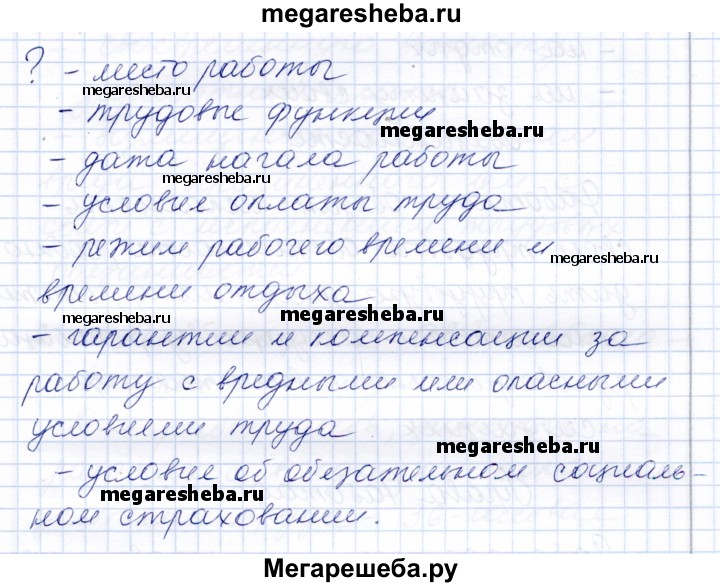 megaresheba.ru
? - место работы
megaresheba.ru
- трудовые функции
megaresheba.ru
- дата начала работы
megaresheba.ru
- условия оплаты труда
- режим рабочего времени и
megaresheba.ru
времени отдыха
megaresheba.ru
megaresheba.ru
- гарантии и компенсации за
работу с вредными или опасными
условиями труда
megaresheba.ru
- условие об обязательном социаль-
megaresheba.ru
ном страховании.
Мегарешеба.ру